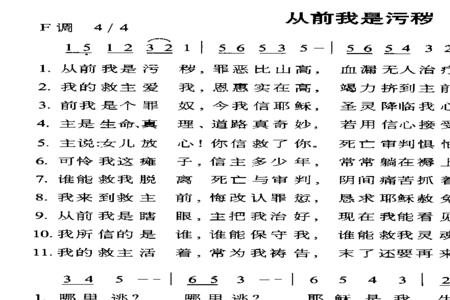 从前我是污秽
F 调 4/4
1 5 1 2 3 2 1 | 5 6 5 3 5 - | 5 6 5 4 3
1. 从前我是污 秽，罪恶比山高，血漏无人治疗
2. 我的救主爱 我，恩惠实在高，竭力挤到主前
3. 前我是个罪 奴，今我信耶稣，圣灵降临我心
4. 主是生命、真 理、道路真奇妙，若用信心接受
5. 主说：女儿放 心！你信救了你。死亡审判惧怕
6. 可怜我这瘫 子，信主多少年，常常躺在褥上
7. 谁能救我脱 离 死亡与审判，阴间痛苦抓着
8. 我来到救主 前，悔改认罪愆，恳求耶稣赦免
9. 从前我是瞎 眼，主把我治好，现在我能看见
10. 我所信的是 谁，谁能保守我，谁能救我灵魂
11. 我的救主活 着，常为我祷告，末了还要再来
3 4 5 - - | 6 5 3 - - |
1. 哪里逃？ 哪里逃？ 耶稣是我